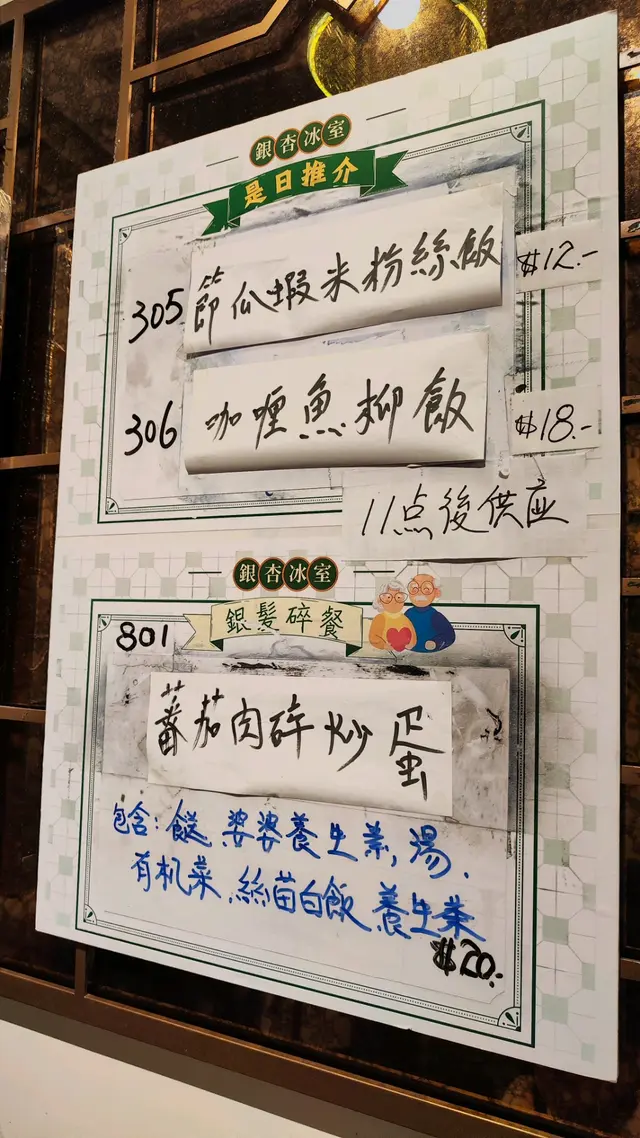 銀杏冰室
是日推介
305 節瓜蝦米粉絲飯 $12.-
306 咖喱魚柳飯 $18.-
11点後供应
銀杏冰室
銀髮碎餐
801
蕃茄肉碎炒蛋
包含: 餸, 婆婆養生羹, 湯.
有机菜, 絲苗白飯 養生茶
$20.-